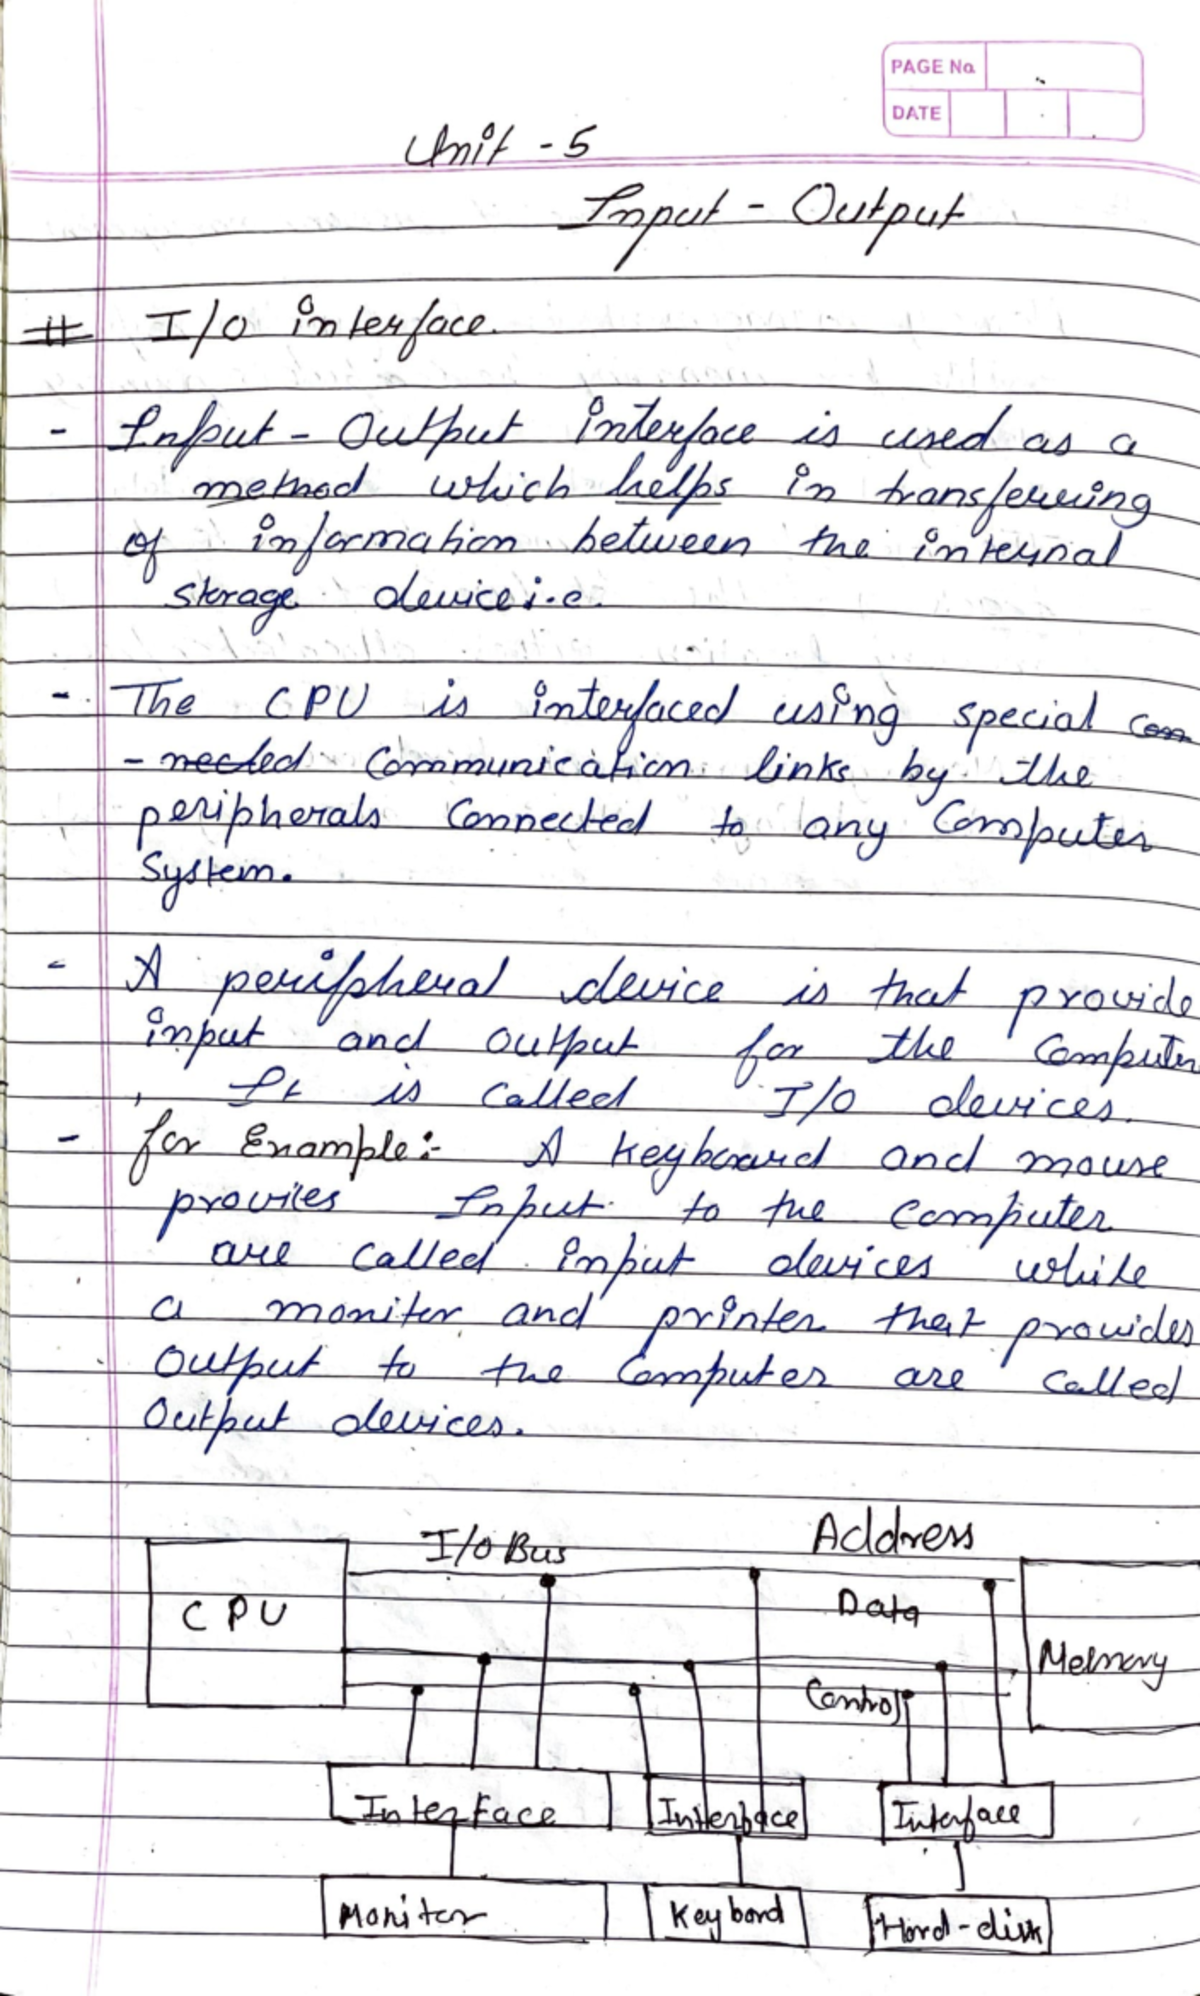 PAGE No
DATE
Unit - 5
Input - Output
# I/O interface.
- Input - Output interface is used as a
method which helps in transferring
of information between the internal
storage device i.e.
- The CPU is interfaced using special con
- nected Communication links by the
peripherals Connected to any Computer
System.
- A peripheral device is that provide
input and output for the Computer
, It is called I/O devices.
- for Example:- A keyboard and mouse
provies Input to the computer
are called input devices while
a monitor and printer that provides
output to the Computer are called
Output devices.
I/O Bus Address
CPU Data
Memory
Control
Interface Interface Interface
Monitor Keybord Hard-disk